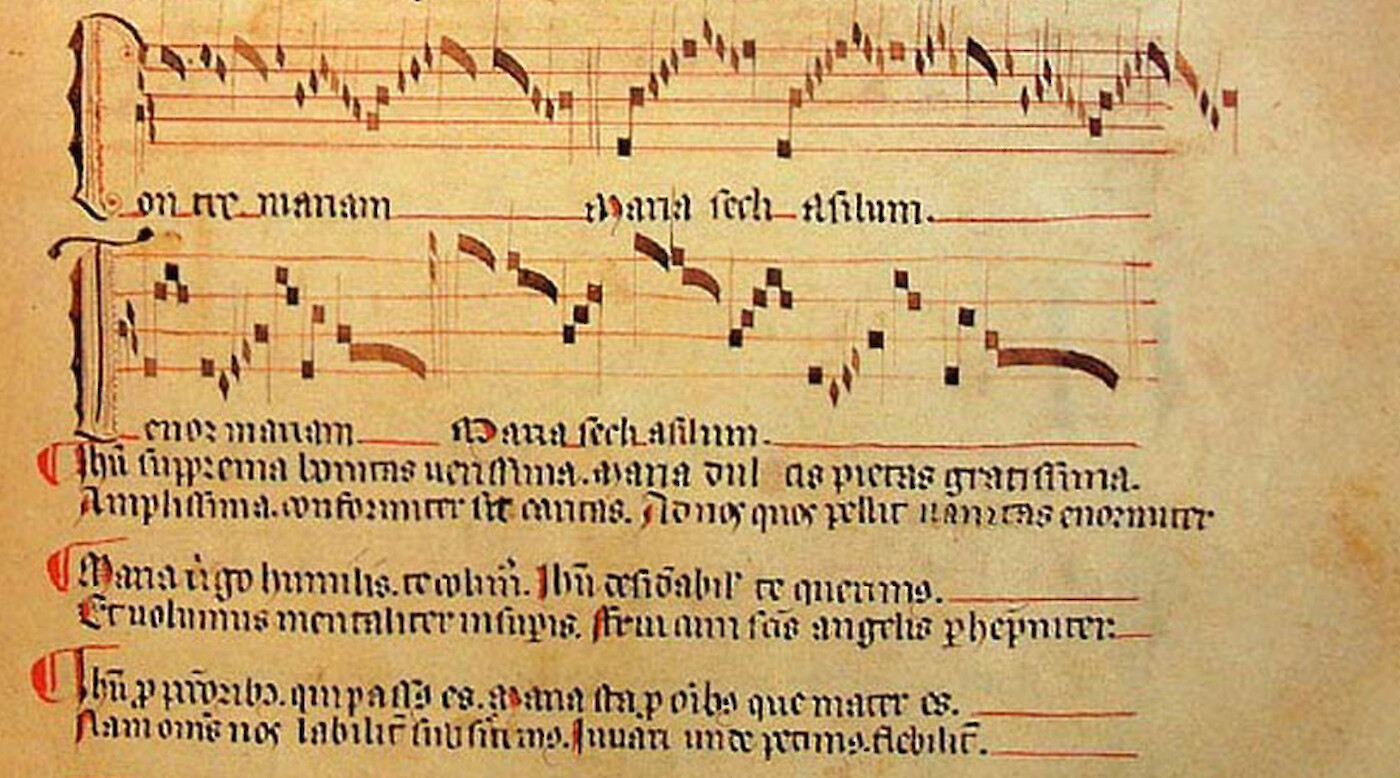 Contr̄ mariam Maria secli Asilum.
Tenor mariam Maria secli asilum.
Jhū supprema bonitas uerissima. Maria dul cis pietas gratissima.
Amplissima. conformiter sit caritas. Ad nos quos pellit uanitas enormiter
Maria ùgo humilis. te colim᷒. Jhū desid̄abil᷒ te querimus.
Et uolumus mentaliter in suꝑis. Frui cum sc̄is angelis ꝑhep̄niter.
Jhū ꝓ pct̄oribꝫ. qui passꝰ es. Maria sta ꝓ oībꝫ que mater es.
Nam om̄s nos labilit̄ subsistimꝰ. Juuari unde petimꝰ. flebilit̄.